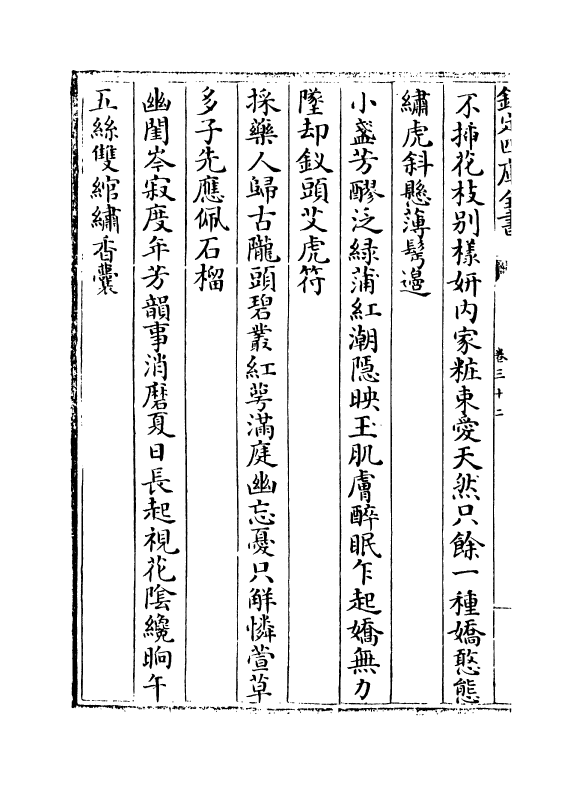 欽定四庫全書
卷三十二
不揷花枝别樣妍内家粧束愛天然只餘一種嬌憨態
繡虎斜懸薄鬂邉
小盞芳醪泛緑蒲紅潮隠映玉肌膚醉眠乍起嬌無力
墜却釵頭艾虎符
採藥人歸古隴頭碧叢紅萼滿庭幽忘憂只解憐萱草
多子先應佩石榴
幽閨岑寂度年芳韻事消磨夏日長起視花隂纔晌午
五絲雙綰繡香囊